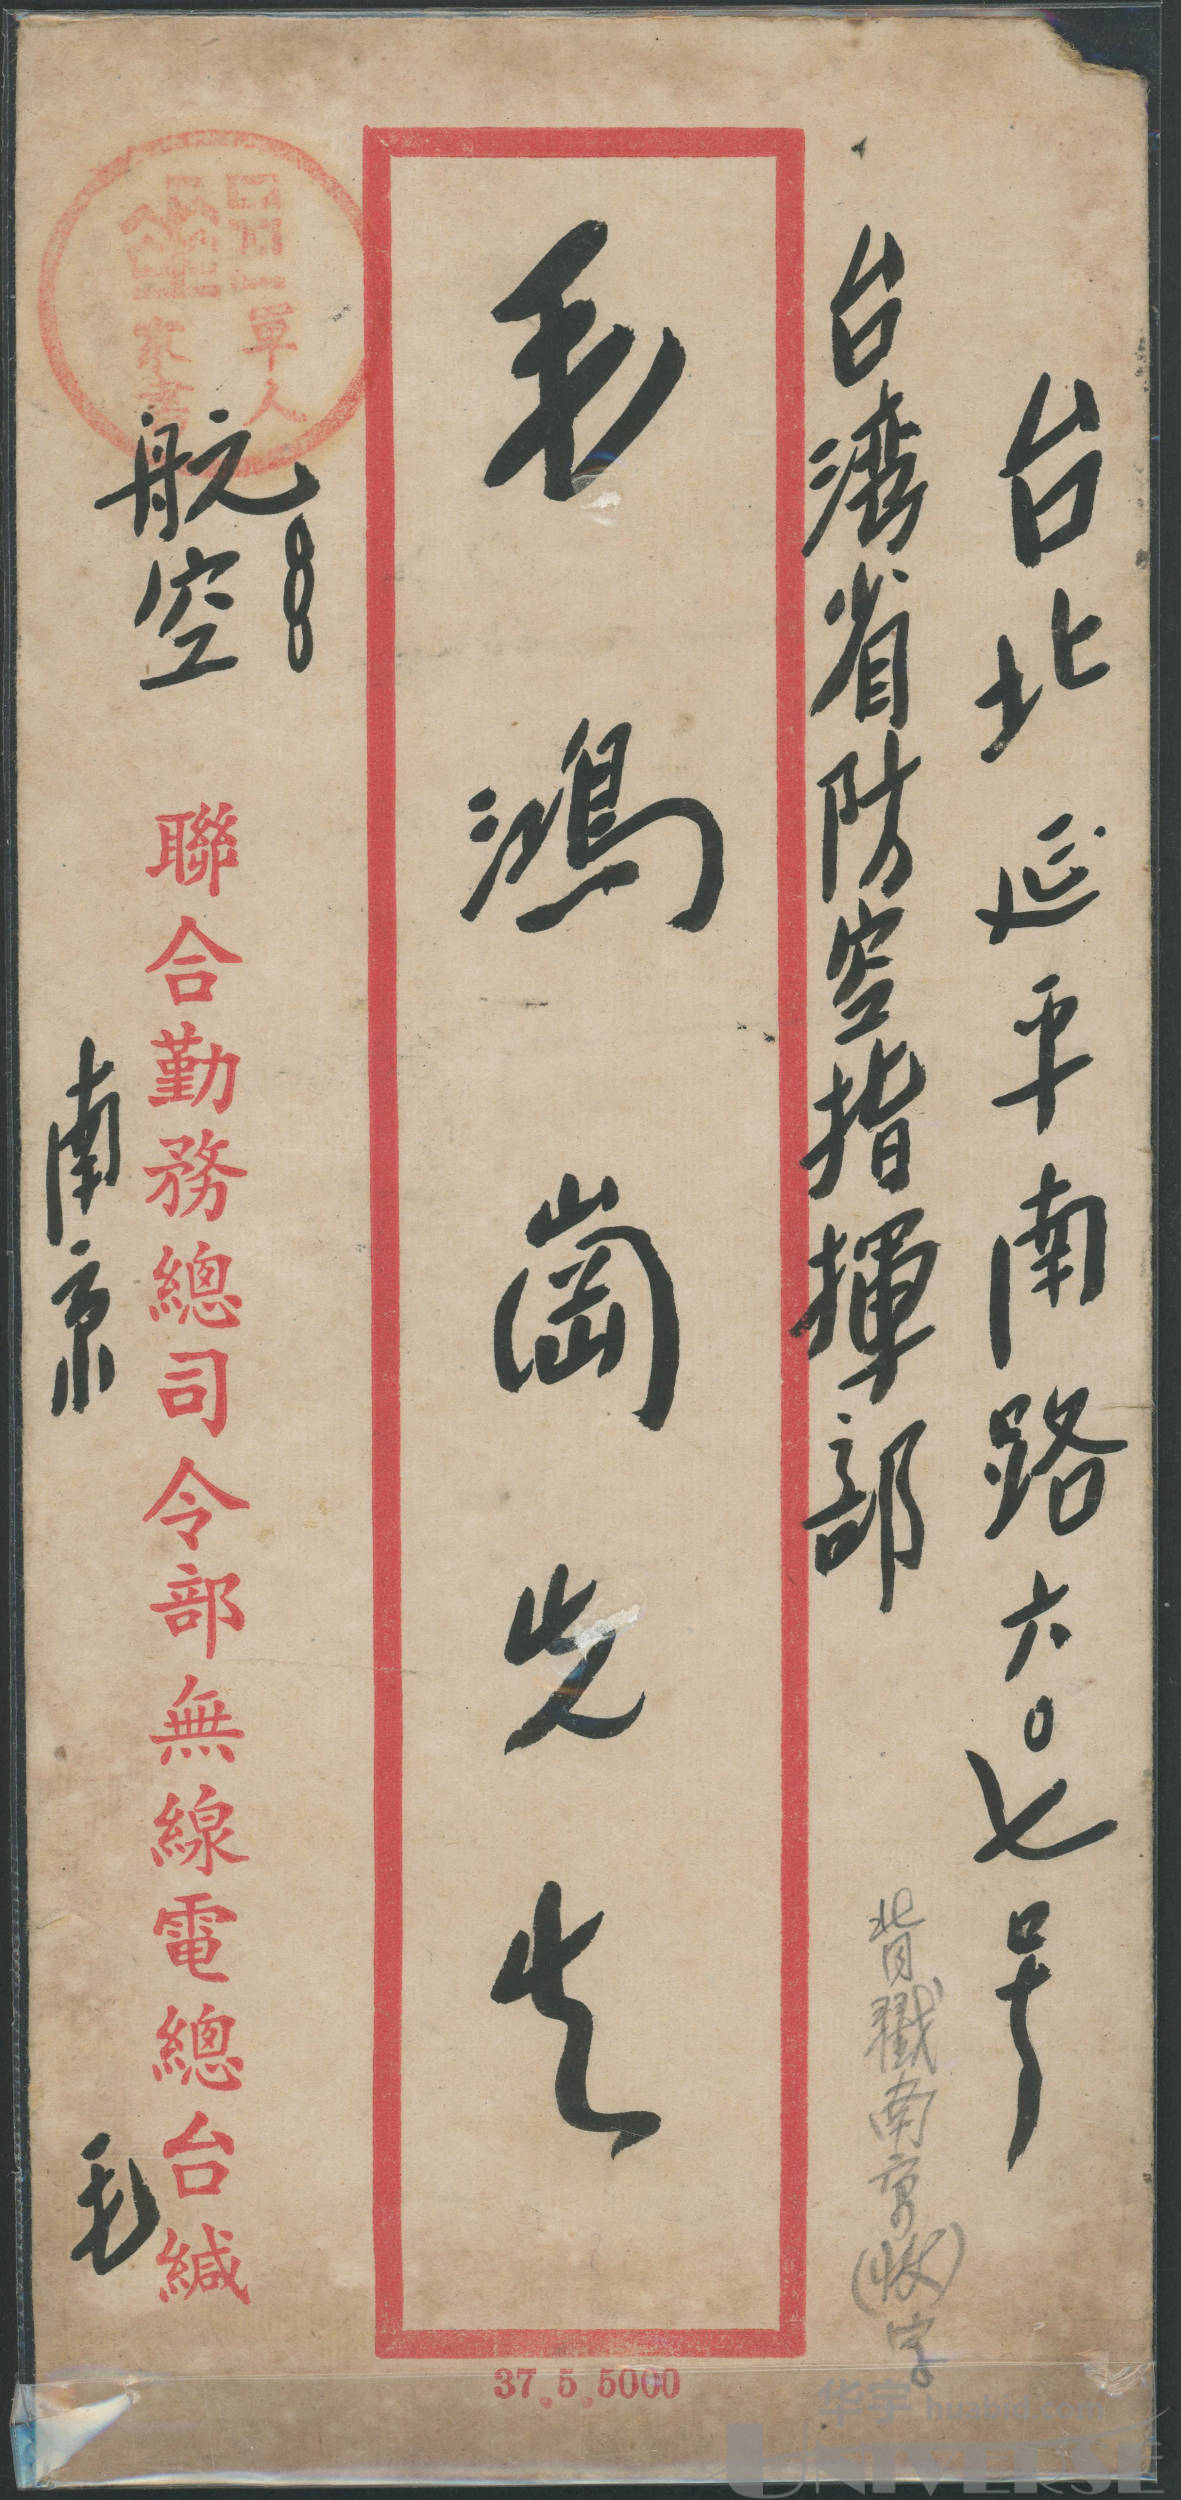 台北延平南路六〇七号
台湾省防空指揮部
背戳南京(收)字
毛鴻崗先生
37.5.5000
軍人
家書
航空
聯合勤務總司令部無線電總台緘
南京
毛
华宇 huabid.com
UNIVERSE